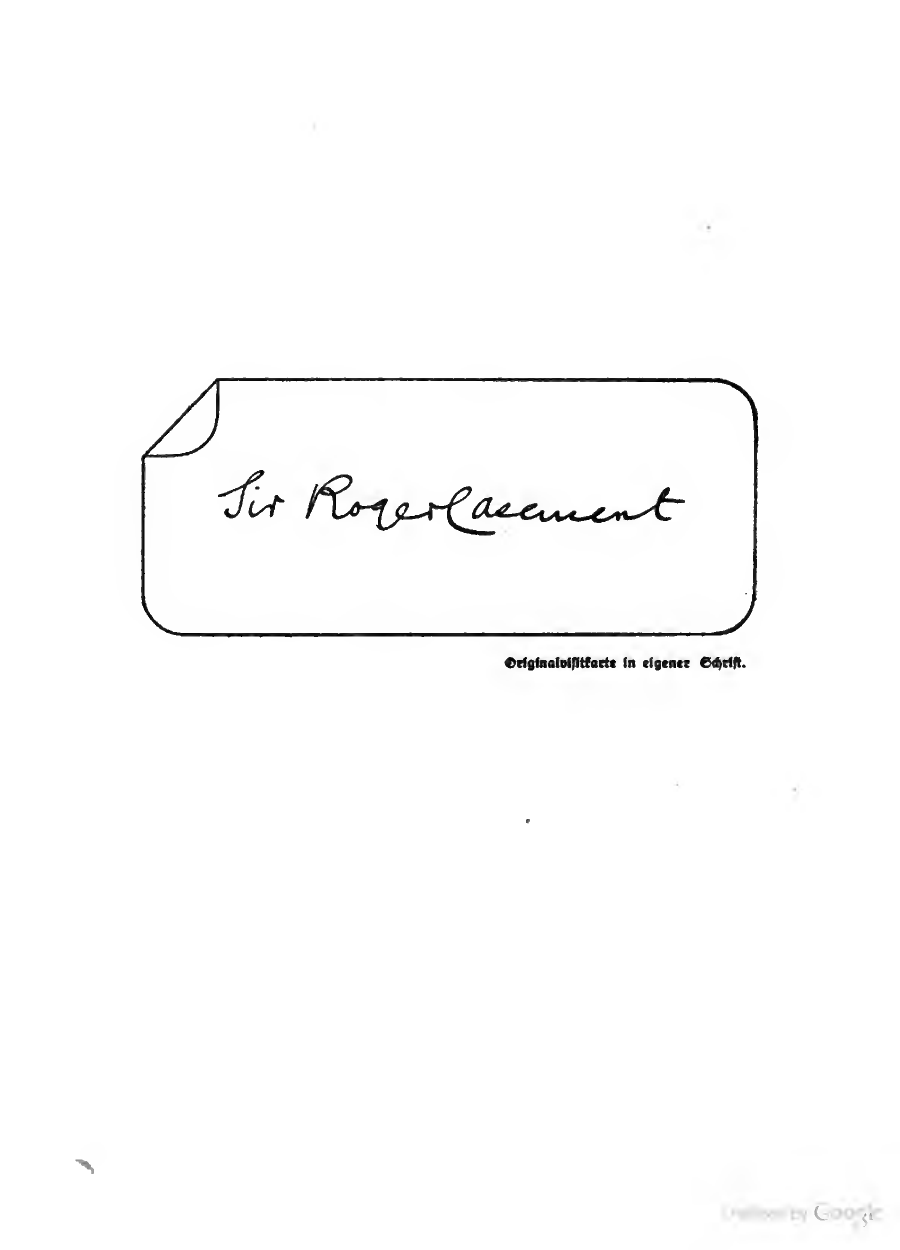 Sir Roger Casement
Originalvisitkarte in eigener Schrift.
Digitized by Google